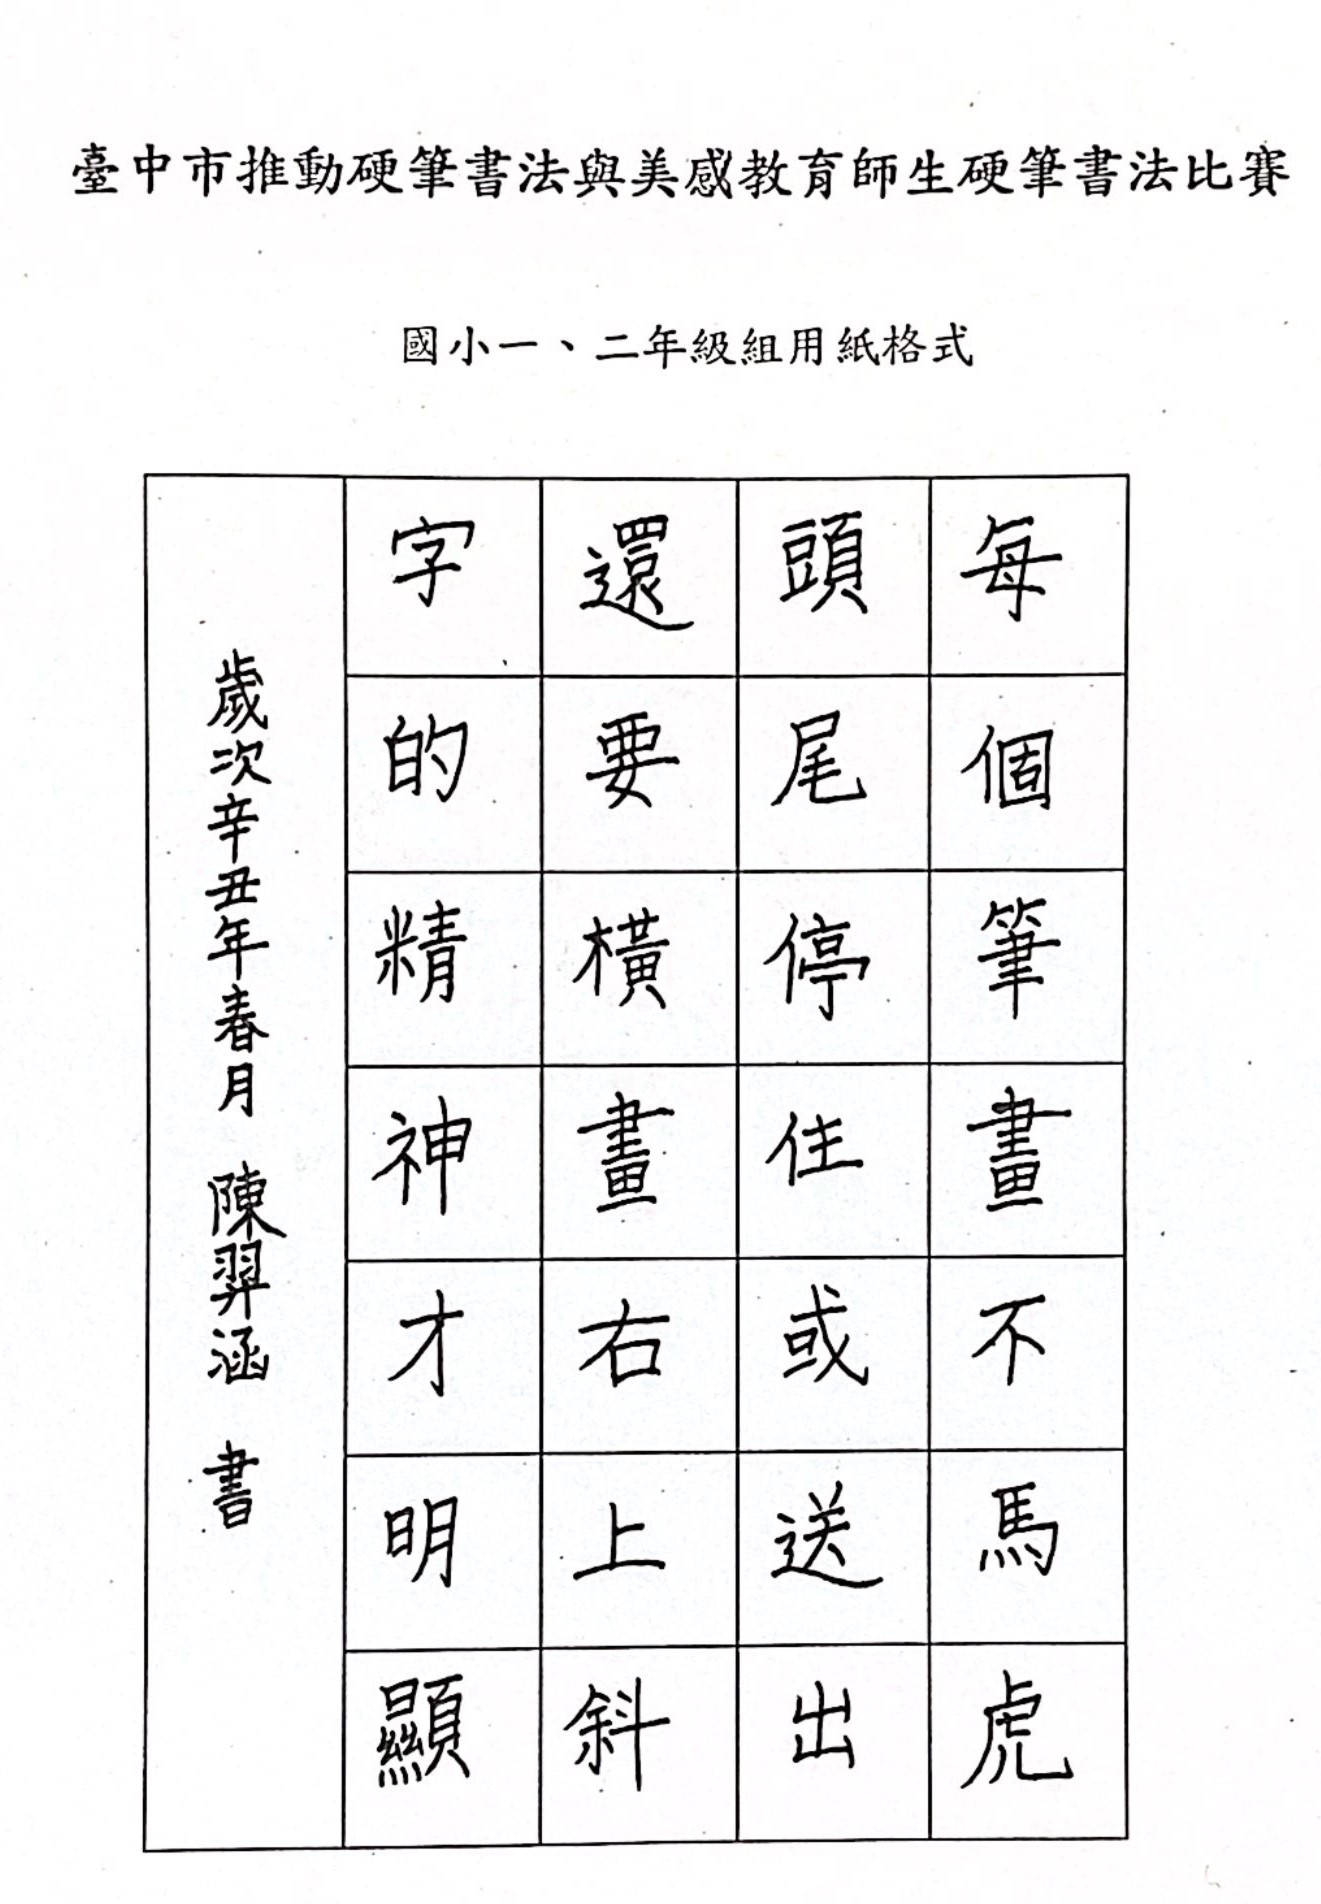 臺中市推動硬筆書法與美感教育師生硬筆書法比賽
國小一、二年級組用紙格式
每個筆畫不馬虎
頭尾停住或送出
還要橫畫右上斜
字的精神才明顯
歲次辛丑年春月 陳羿涵 書